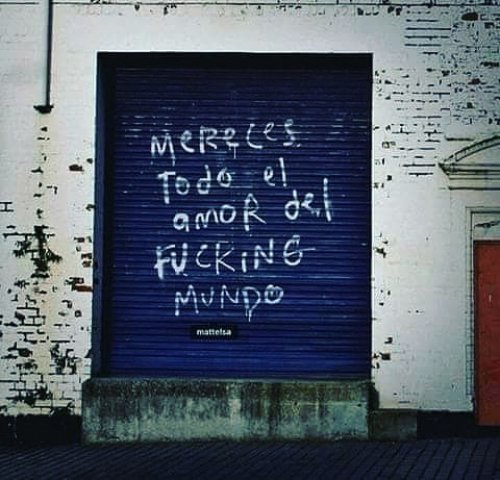 MeReces
Todo el
amoR del
FUCKING
MUNDO
mattelsa